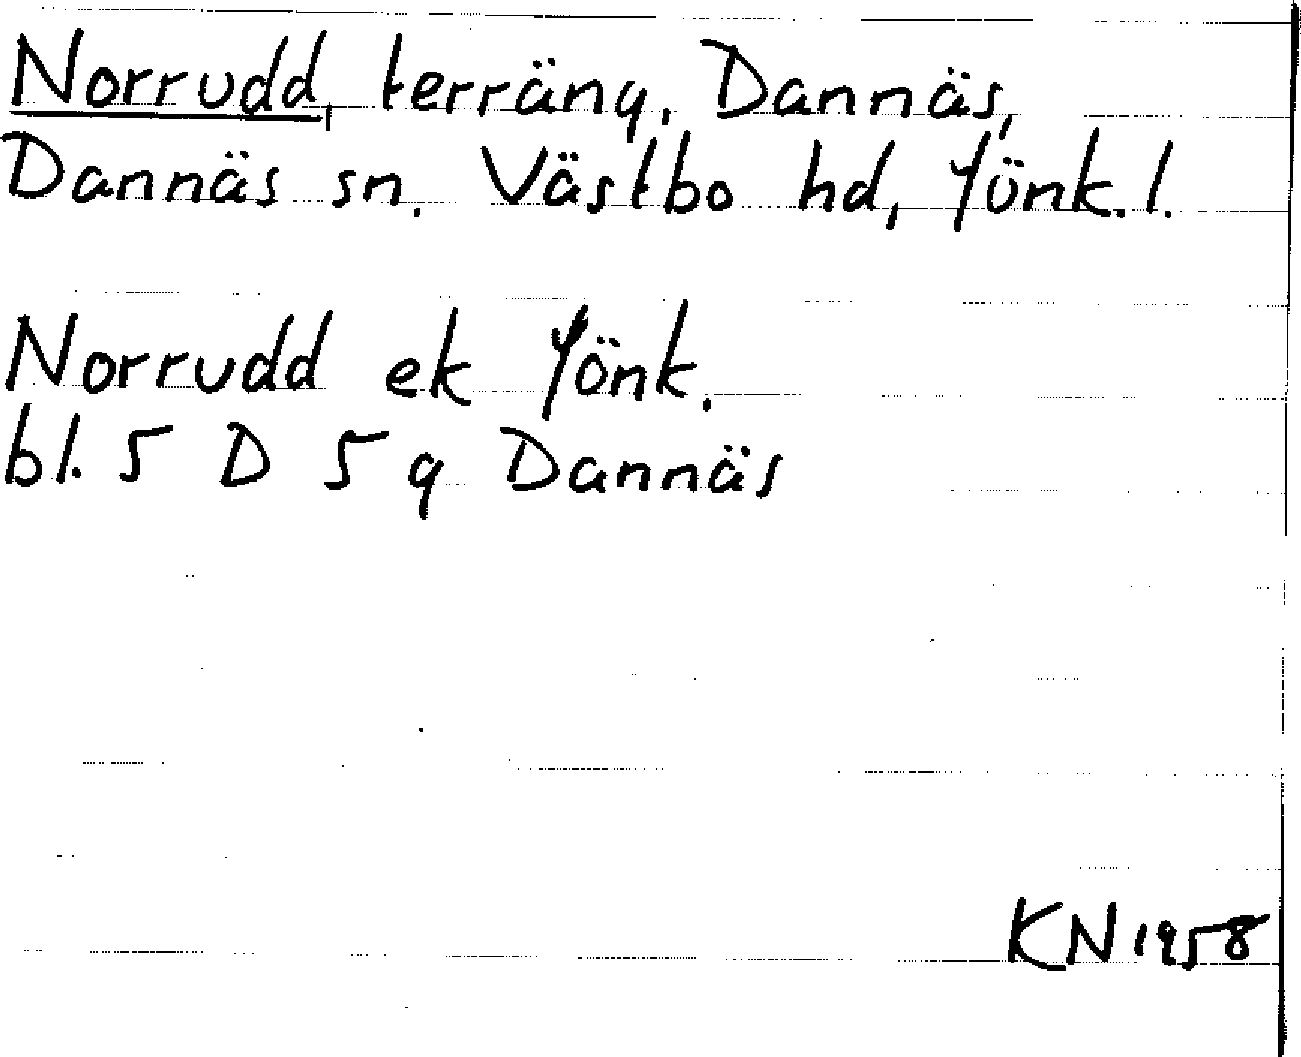 Norrudd, terräng, Dannäs,
Dannäs sn. Västbo hd, Jönk. l.
Norrudd ek Jönk.
bl. 5 D 5 g Dannäs
KN 1958